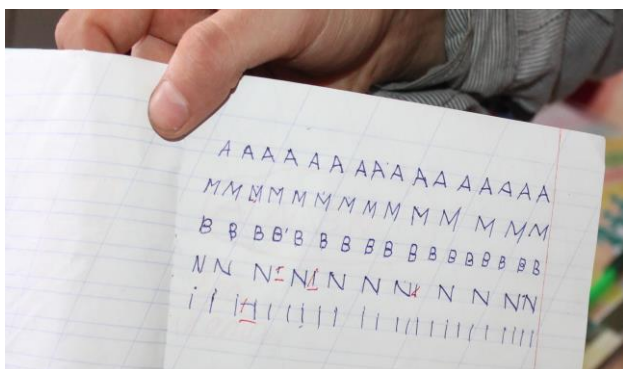 A A A A A A A A A A A A A A A A A
M M M M M M M M M M M M M M M
B B B B B B B B B B B B B B B B B
N N N N N N N N N N N
i i i i i i i i i i i i i i i i i i i